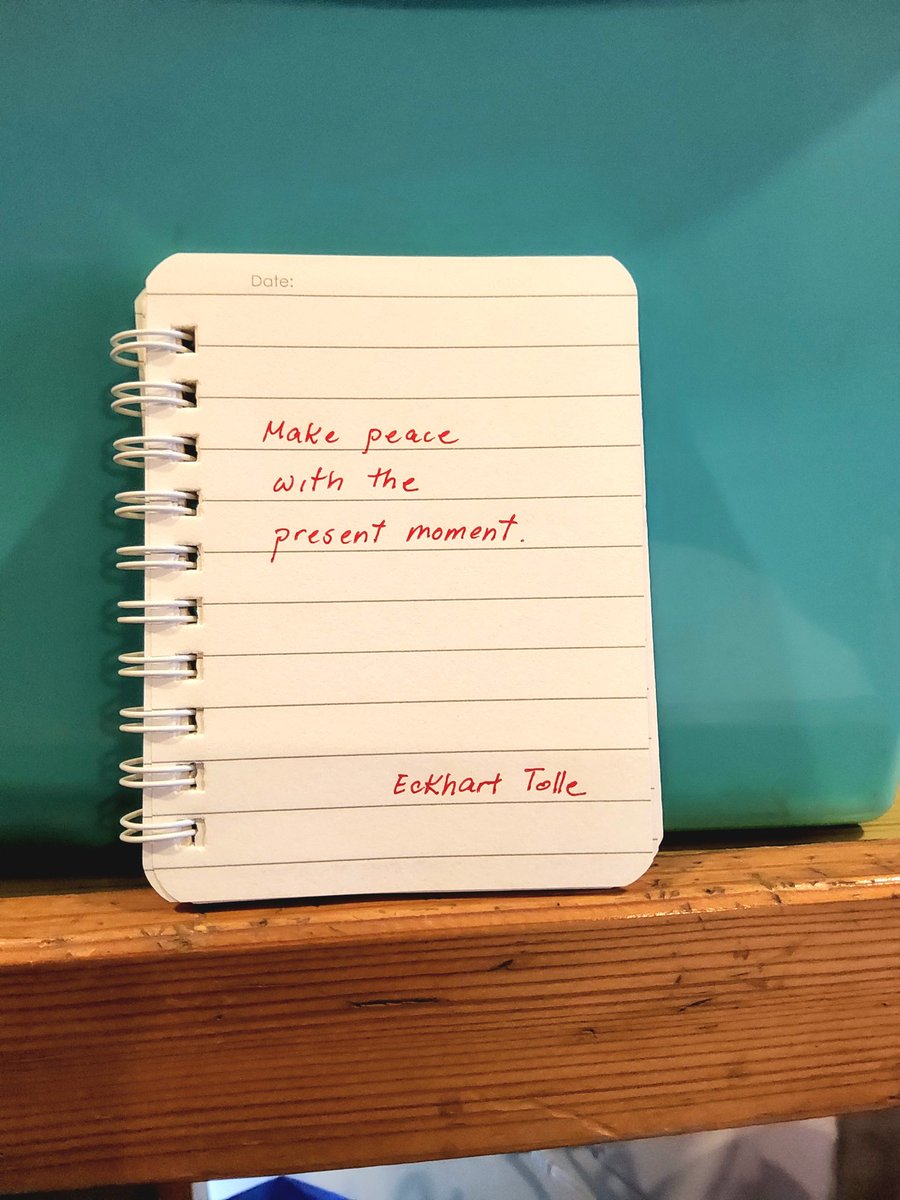 Date:
Make peace
with the
present moment.
Eckhart Tolle